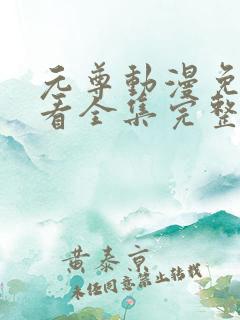 元尊動漫免
看全集完整
黄泰京
未经同意禁止转载